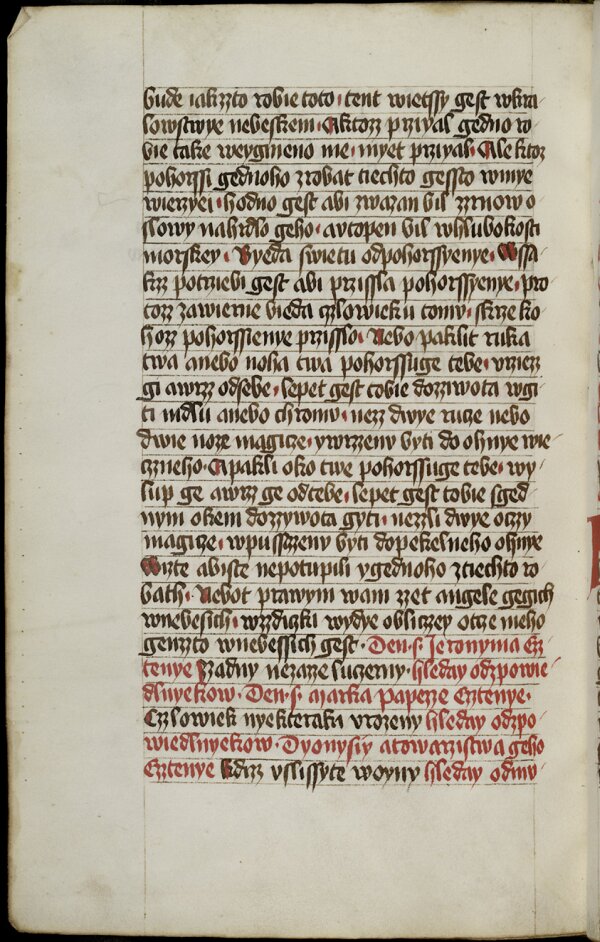 bude iakzzto robie toto · tent wietssy gest wkra
lowstwye nebeskem · Aktorz przyal gedno ro
bie take weygmeno me · myet przyal · Ale ktoz
pohorssi gednoho zrobat tiechto gessto wmye
wierzyei · hodno gest abi zwazan bil zrnow o
slowy nahrdlo geho · avtopen bil whlubokosti
morskey · Byeda swietu odpohorssyenye · Wssa
krz potrzebi gest abi przissla pohorssyenye · pro
torz zawierne bieda czlowieku tomv · skrze ko
horz pohorssienye przisslo · Nebo paklit ruka
twa anebo noha twa pohorssuge tebe · vrziez
gi awrz odsebe · lepet gest tobie dozzwota wgi
ti mdlu anebo chromv · nezz dwye ruce nebo
dwie noze magicze · ywrzeny byti do ohnye wie
czneho · Apakli oko twe pohorssuge tebe · wy
lup ge awrz ge odtebe · lepet gest tobie sged
nym okem dozzywota gyti · nezzli dwye oczy
magicze · wpusscзeny byti dopekelneho ohnye
Wizte abiste nepotupili ygednoho ztiechto ro
bath · Nebot prawym wam zzet angele gegich
wnebesich · wzdiczki wydye obliczey otcze meho
genzto wnebessich gest · Den · s · Jeronyma Cz
tenye Zadny nezaze luczerny · hleday odzpowie
dlnyekow · Den · s · Marka papezze Cztenye ·
Czlowiek nyekteraki vrozeny hleday odzpo
wiedlnyekow · Dyonysiy atowarzistwa geho
Cztenye Kdizz vslissyte woyny hleday odmv